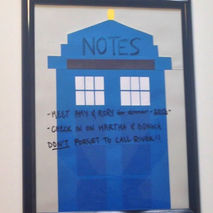 NOTES
- MEET AMY & RORY
- CHECK IN ON MARTHA & DONNA
DON'T FORGET TO CALL RIVER!!